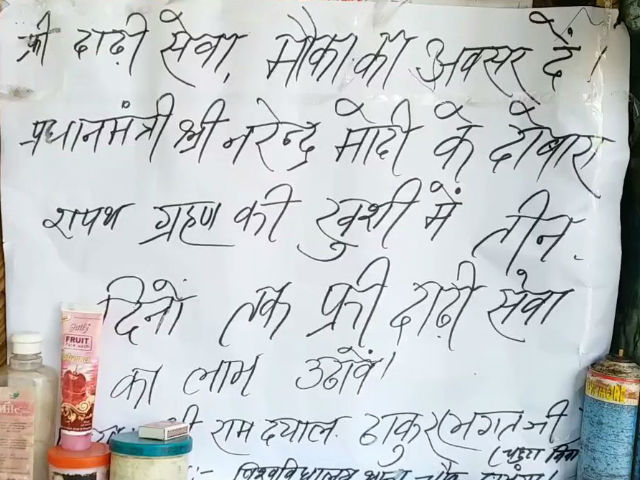 फ्री दाढ़ी सेवा, मौका का अवसर दें।
प्रधानमंत्री श्री नरेन्द्र मोदी के दोबारा
शपथ ग्रहण की खुशी में तीन
दिनों तक फ्री दाढ़ी सेवा
का लाभ उठावें।
श्री राम दयाल ठाकुर भगत जी
विश्वविद्यालय थाना चौक
FRUIT